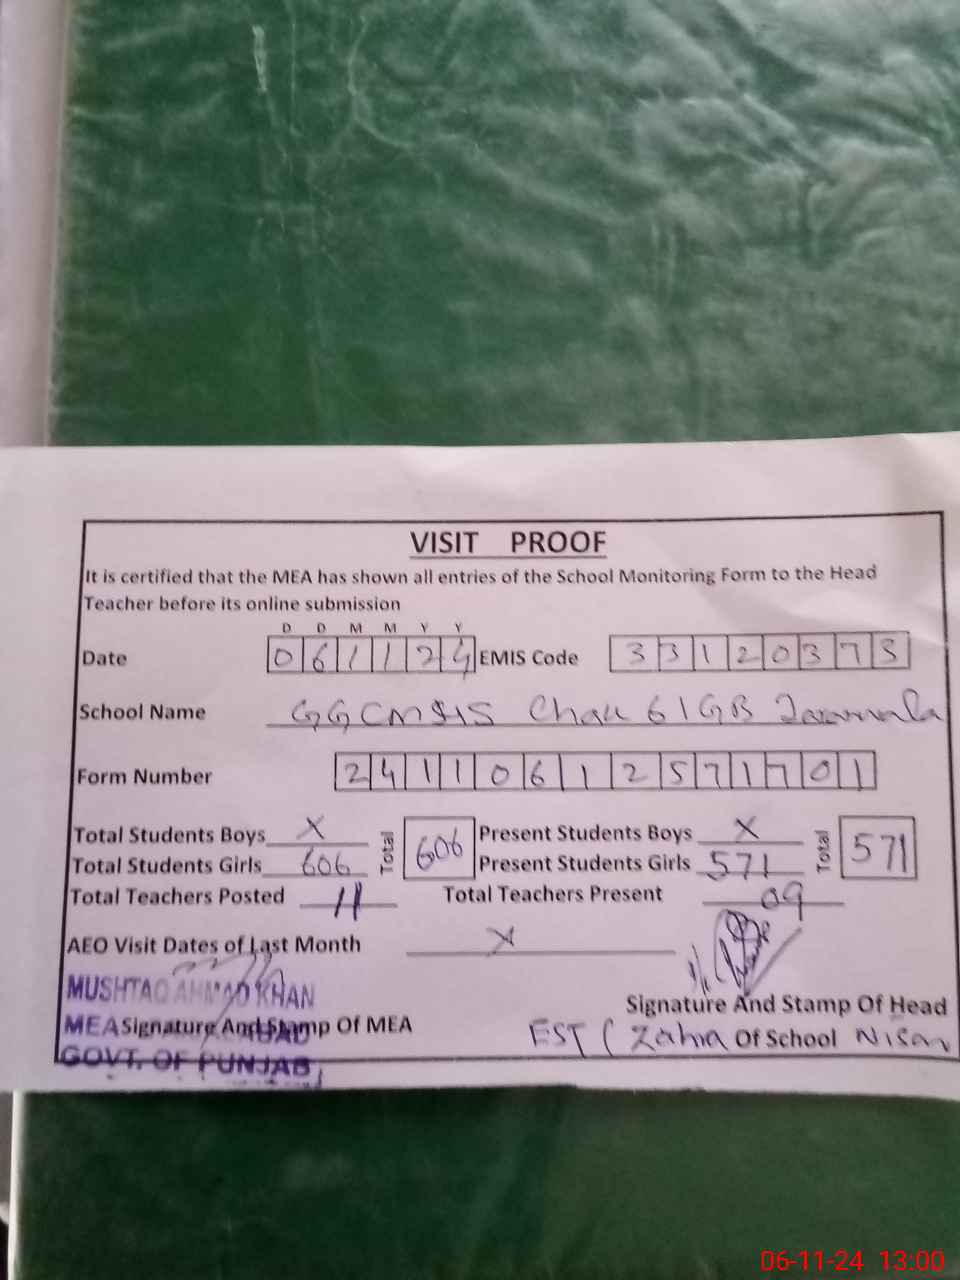 VISIT PROOF
It is certified that the MEA has shown all entries of the School Monitoring Form to the Head
Teacher before its online submission
D D M M Y Y
Date 0 6 1 1 2 4 EMIS Code 3 3 1 2 0 3 7 3
School Name GGCMSHS Chak 61GB Jaranwala
Form Number 2 4 1 1 0 6 1 2 5 7 1 7 0 1
Total Students Boys X Total 606 Present Students Boys X Total 571
Total Students Girls 606 Present Students Girls 571
Total Teachers Posted 11 Total Teachers Present 09
AEO Visit Dates of Last Month X
MUSHTAQ AHMAD KHAN
Signature And Stamp Of Head
MEA Signature And Stamp Of MEA
EST ( Zahra Of School Nisar
GOVT. OF PUNJAB
06-11-24 13:00